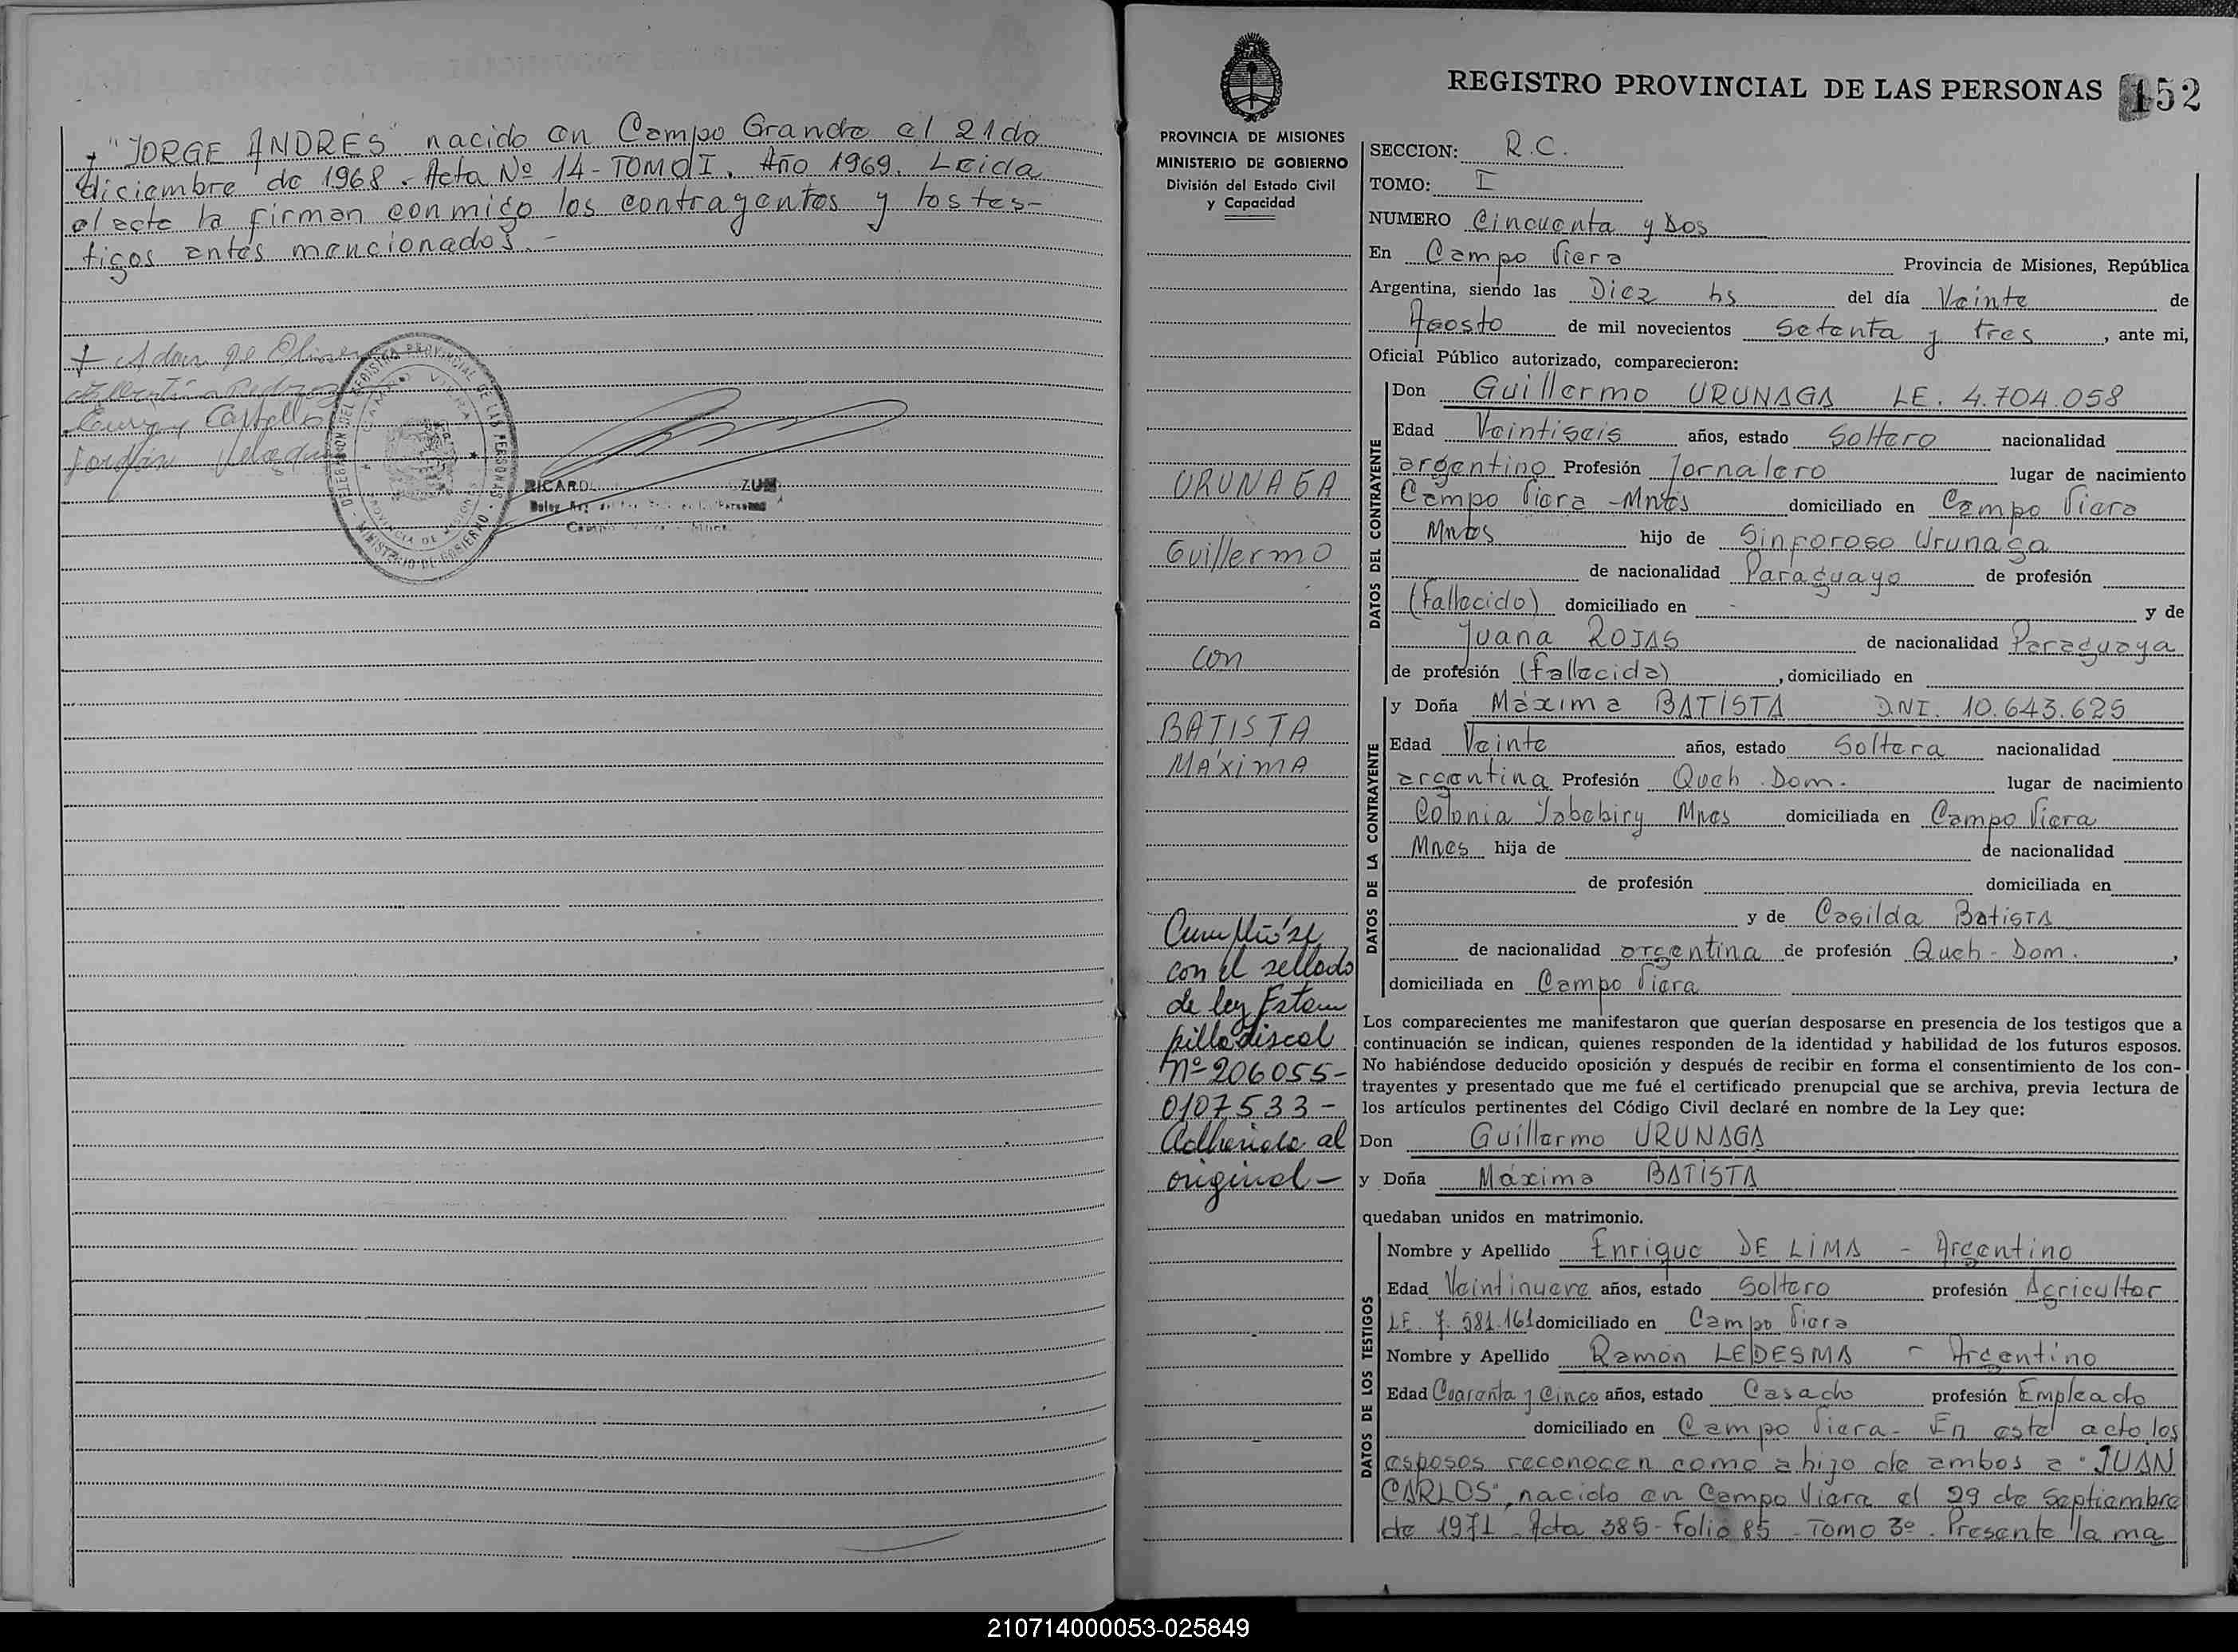 y "JORGE ANDRES" nacido en Campo Grande el 21 de
diciembre de 1968.- Acta Nº 14 - TOMO I. Año 1969. Leida
el acta la firman conmigo los contrayentes y los tes-
tigos antes mencionados.-
DELEGACION DEL REGISTRO PROVINCIAL DE LAS PERSONAS
CAMPO VIERA
PROVINCIA DE MISIONES
MINISTERIO DE GOBIERNO
RICARD
REGISTRO PROVINCIAL DE LAS PERSONAS 152
PROVINCIA DE MISIONES
MINISTERIO DE GOBIERNO
División del Estado Civil
y Capacidad
URUNAGA
Guillermo
con
BATISTA
MÁXIMA
Cumplióse
con el sellado
de ley Estam
pilla fiscal
Nº 206055-
0107533-
Adherido al
original-
SECCION: R.C.
TOMO: I
NUMERO Cincuenta y Dos
En Campo Viera Provincia de Misiones, República
Argentina, siendo las Diez hs del día Veinte de
Agosto de mil novecientos setenta y tres, ante mi,
Oficial Público autorizado, comparecieron:
DATOS DEL CONTRAYENTE
Don Guillermo URUNAGA LE. 4.704.058
Edad Veintiseis años, estado Soltero nacionalidad
argentino Profesión Jornalero lugar de nacimiento
Campo Viera - Mnes domiciliado en Campo Viera
Mnes hijo de Sinforoso Urunaga
de nacionalidad Paraguayo de profesión
(fallecido) domiciliado en y de
Juana ROJAS de nacionalidad Paraguaya
de profesión (fallecida), domiciliado en
DATOS DE LA CONTRAYENTE
y Doña Máxima BATISTA D.N.I. 10.643.625
Edad Veinte años, estado Soltera nacionalidad
argentina Profesión Queh. Dom. lugar de nacimiento
Colonia Yabebiry Mnes domiciliada en Campo Viera
Mnes hija de de nacionalidad
de profesión domiciliada en
y de Casilda Batista
de nacionalidad argentina de profesión Queh - Dom.,
domiciliada en Campo Viera
Los comparecientes me manifestaron que querían desposarse en presencia de los testigos que a
continuación se indican, quienes responden de la identidad y habilidad de los futuros esposos.
No habiéndose deducido oposición y después de recibir en forma el consentimiento de los con-
trayentes y presentado que me fué el certificado prenupcial que se archiva, previa lectura de
los artículos pertinentes del Código Civil declaré en nombre de la Ley que:
Don Guillermo URUNAGA
y Doña Máxima BATISTA
quedaban unidos en matrimonio.
DATOS DE LOS TESTIGOS
Nombre y Apellido Enrique DE LIMA - Argentino
Edad Veintinueve años, estado Soltero profesión Agricultor
LE. 7.581.161 domiciliado en Campo Viera
Nombre y Apellido Ramón LEDESMA - Argentino
Edad Cuarenta y Cinco años, estado Casado profesión Empleado
domiciliado en Campo Viera - En este acto los
esposos reconocen como a hijo de ambos a "JUAN
CARLOS", nacido en Campo Viera el 29 de Septiembre
de 1971 - Acta 385 - Folio 85 - Tomo 3º. Presente la ma
210714000053-025849